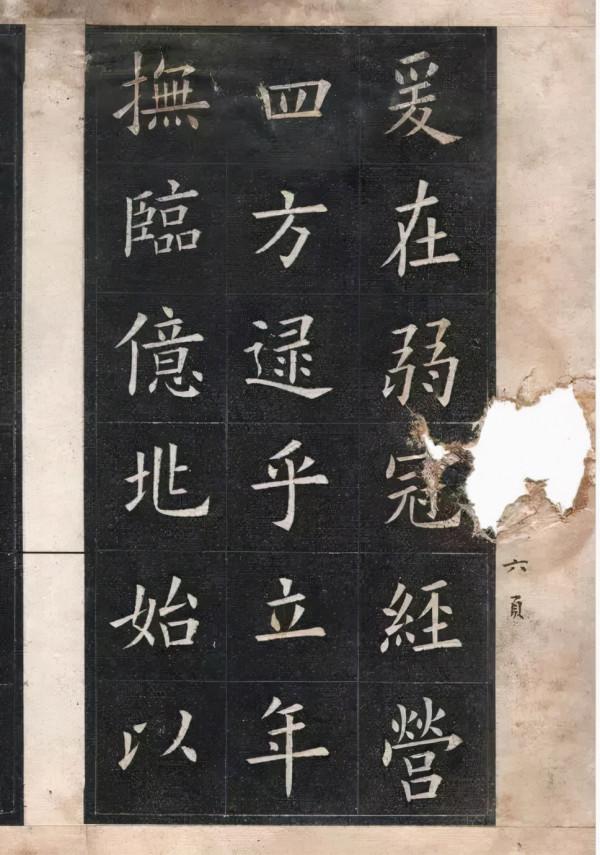 六頁
爰在弱冠經營
四方逮乎立年
撫臨億兆始以